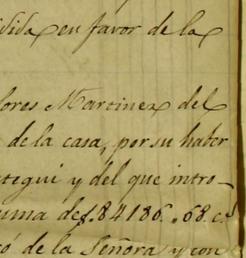 dida en favor de la
lores Martinez del
de la casa, por su haber
tegui y del que intro-
uma de $ 84186.,68 cs
ó de la Señora y con